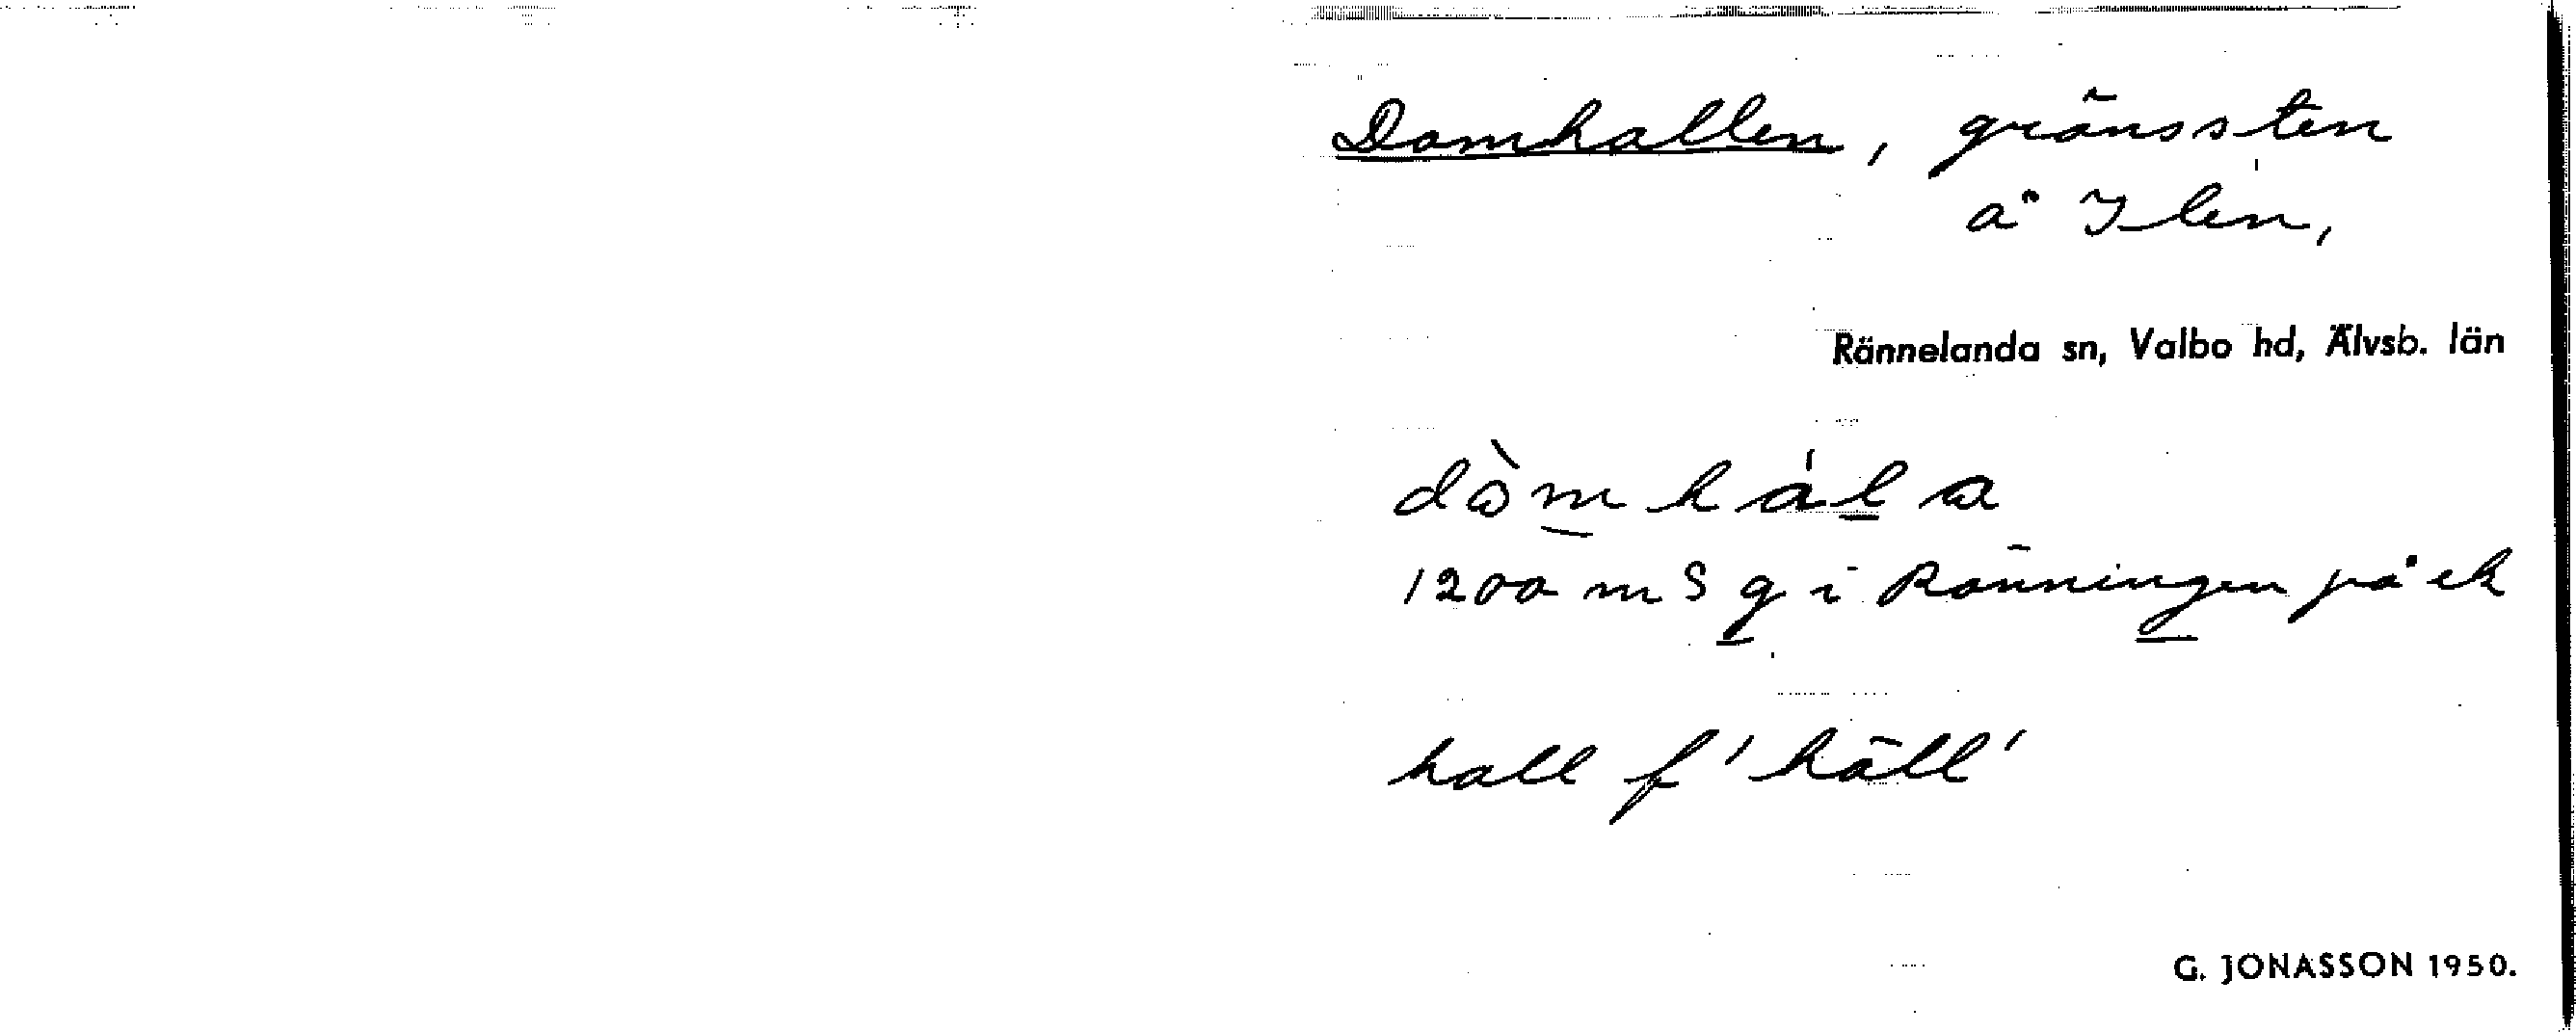 Domhallen, gränssten
å Ilen,
Rännelanda sn, Valbo hd, Älvsb. län
dòmhála
1200 m S g i Rönningen på ek
hall f 'häll'
G. JONASSON 1950.